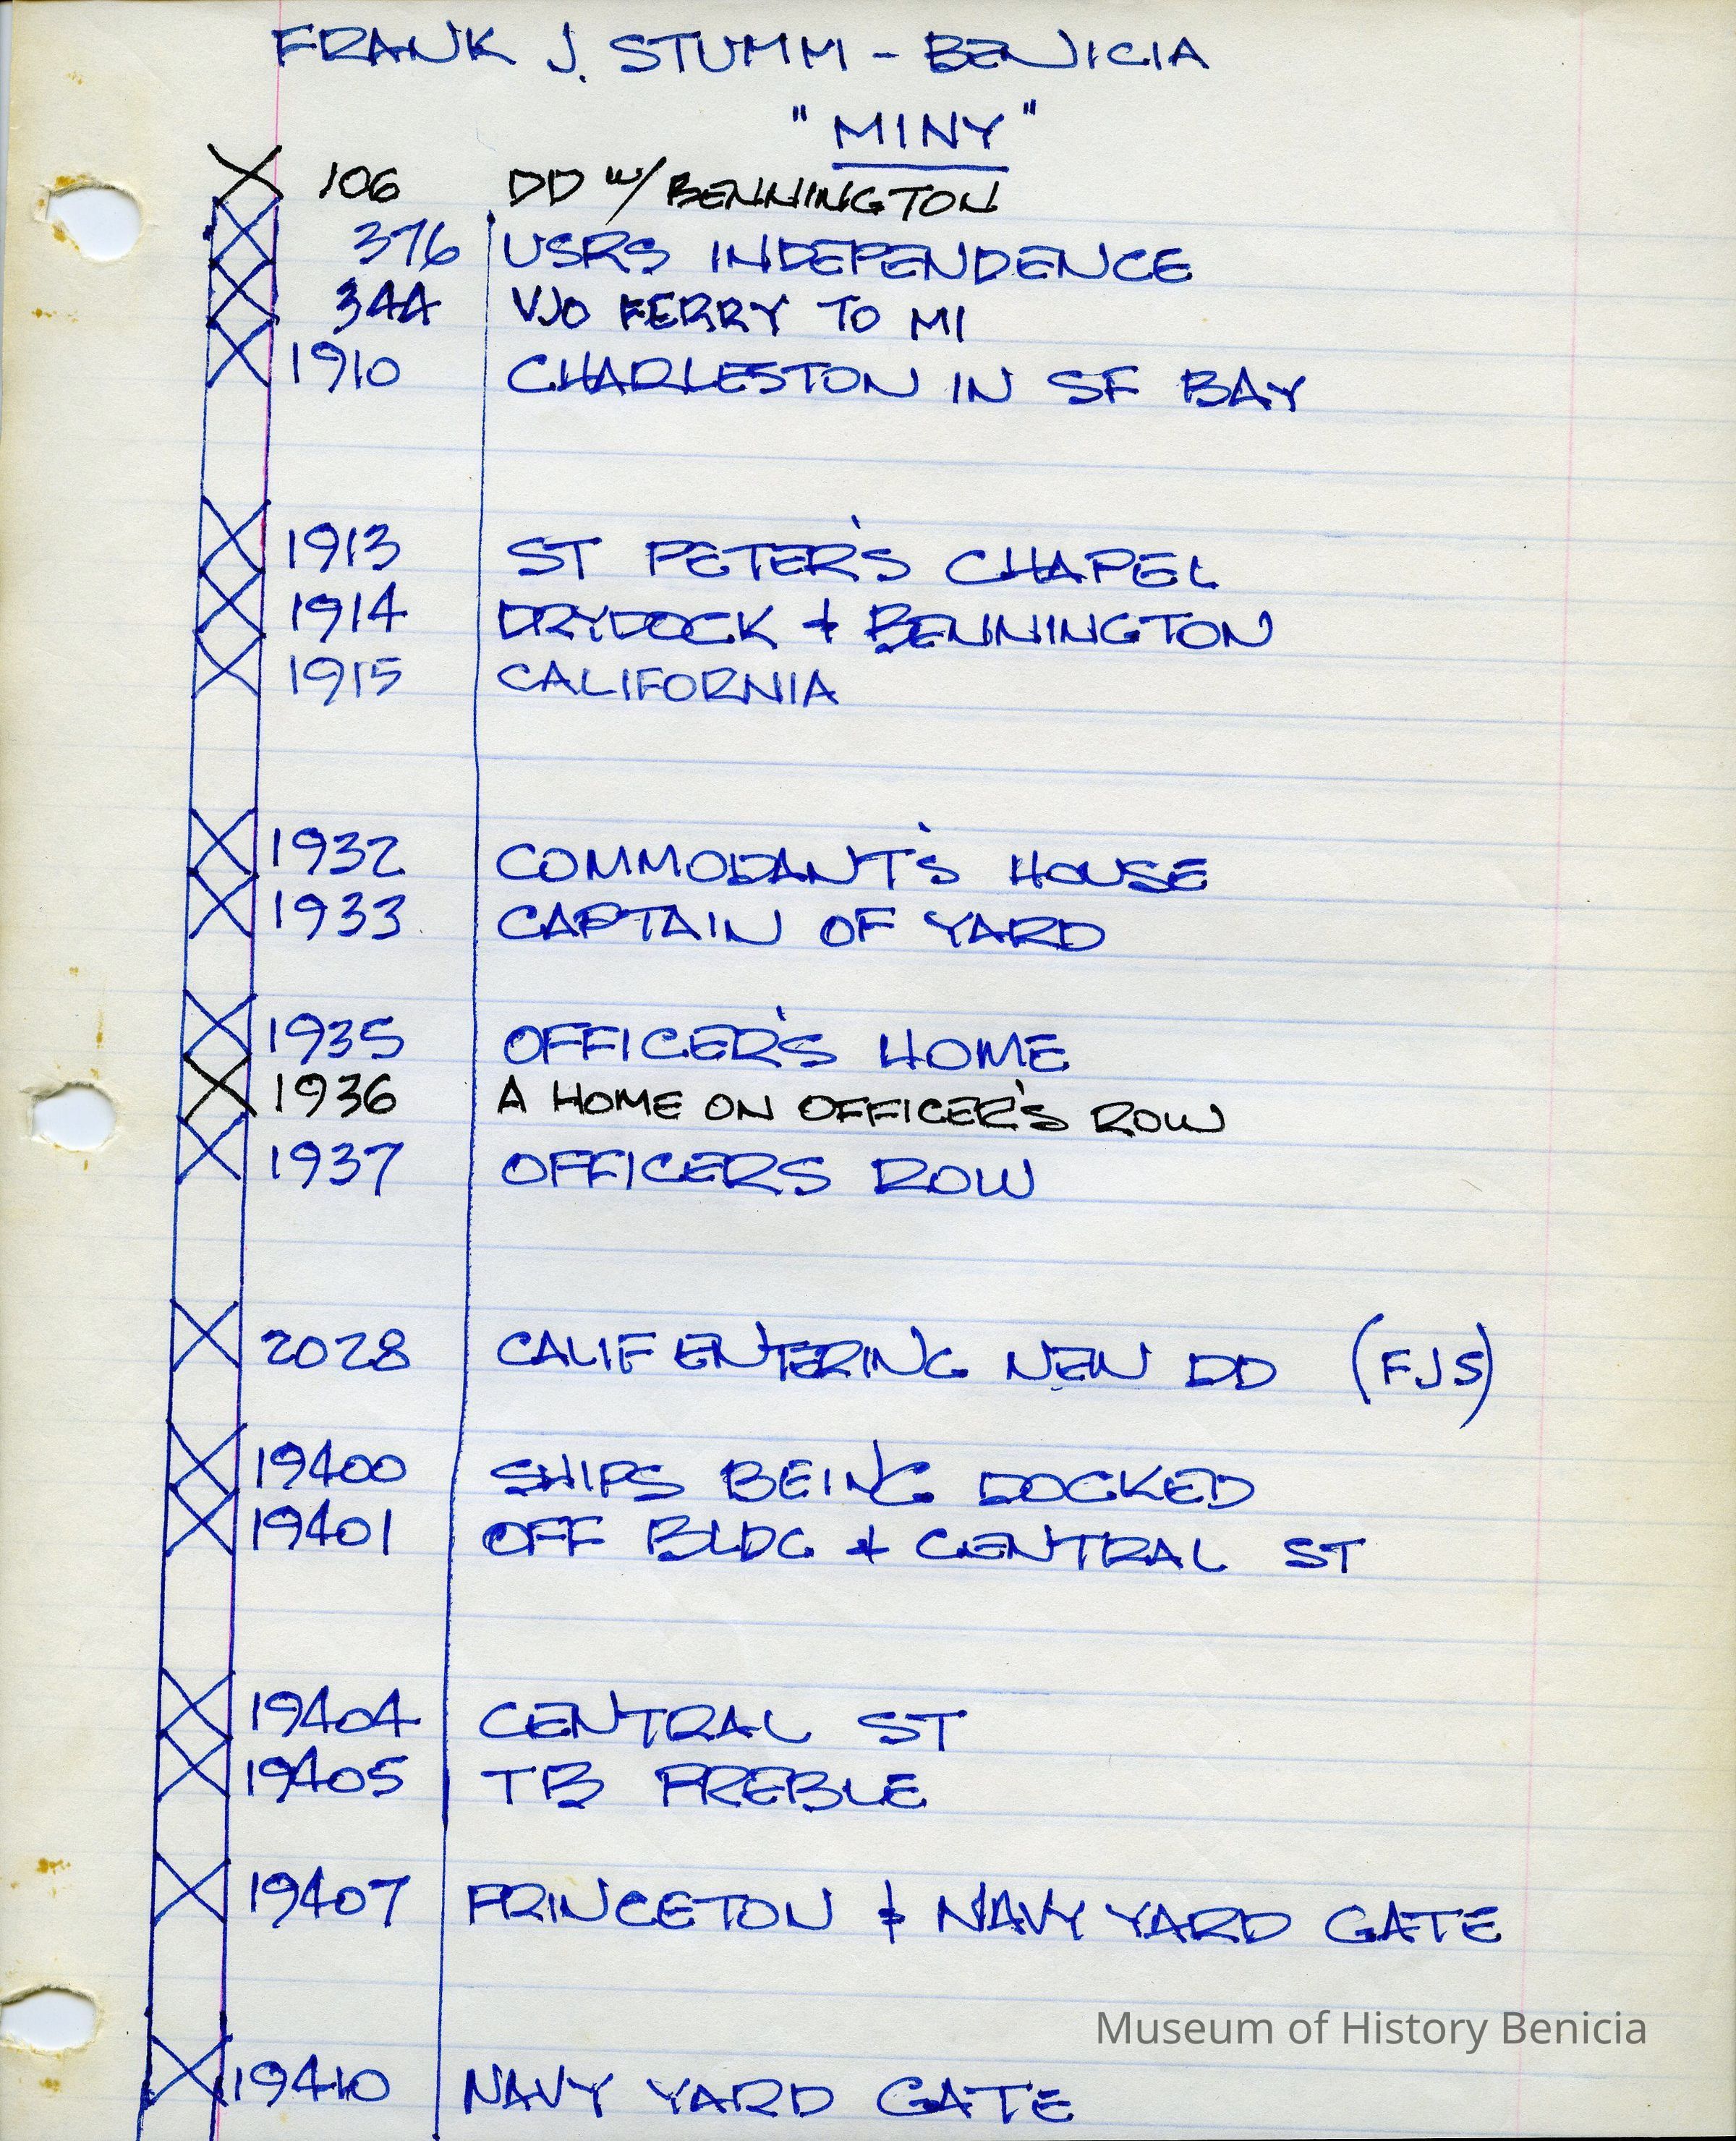 FRANK J. STUMM - BENICIA
"MINY"
106 DD w/ BENNINGTON
376 USRS INDEPENDENCE
344 VJO FERRY TO MI
1910 CHARLESTON IN SF BAY
1913 ST PETER'S CHAPEL
1914 DRYDOCK & BENNINGTON
1915 CALIFORNIA
1932 COMMODANT'S HOUSE
1933 CAPTAIN OF YARD
1935 OFFICER'S HOME
1936 A HOME ON OFFICER'S ROW
1937 OFFICERS ROW
2028 CALIF ENTERING NEW DD (FJS)
19400 SHIPS BEING DOCKED
19401 OFF BLDG & CENTRAL ST
19404 CENTRAL ST
19405 TB PREBLE
19407 PRINCETON & NAVY YARD GATE
Museum of History Benicia
19410 NAVY YARD GATE